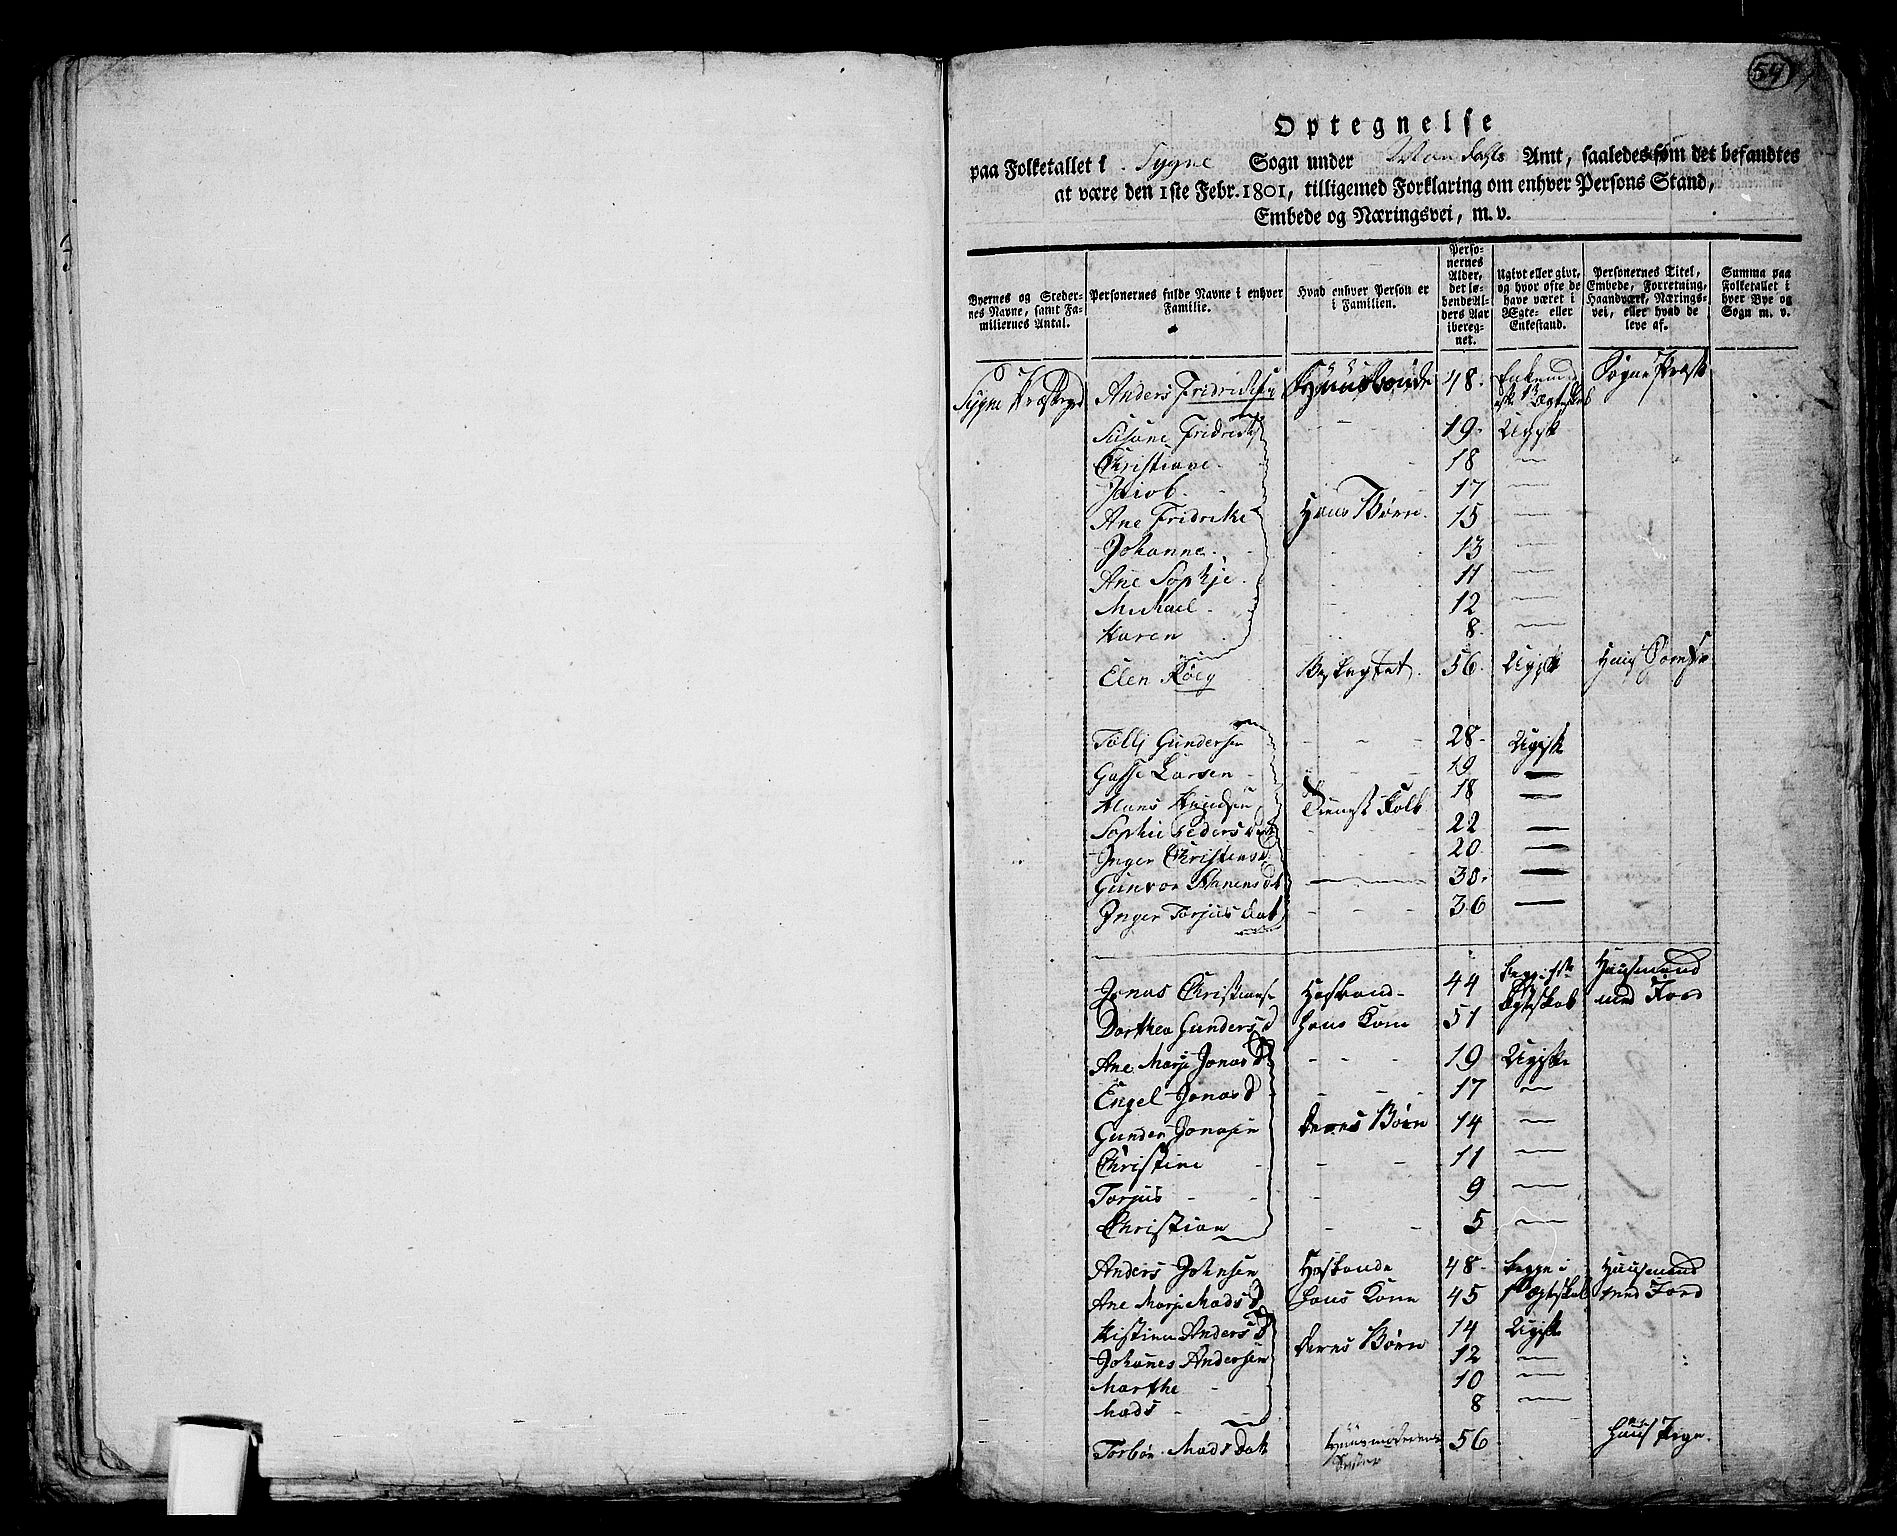 54
Optegnelse
paa Folketallet i Sygne Sogn under Mandahls Amt, saaledes som det befandtes
at være den 1ste Febr. 1801, tilligemed Forklaring om enhver Persons Stand,
Embede og Næringsvei, m. v.
Byernes og Stedernes Navne, samt Familiernes Antal.
Personernes fulde Navne i enhver Familie.
Hvad enhver Person er i Familien.
Personernes Alder, det løbende Alders Aar iberegnet.
Ugivt eller givt, og hvor ofte de have været i Ægte- eller Enkestand.
Personernes Titel, Embede, Forretning, Haandværk, Næringsvei, eller hvad de leve af.
Summa paa Folketallet i hver Bye og Sogn m. v.
Sygne Anders Fridrichsen Huusbonde 48 Enkemd Sogne Præst
Susane Fridrich 19 Ugift
Christiane 18
Jacob 17
Ane Fridrike Hans Børn 15
Johanne 13
Ane Sophje 11
Michael 12
Karen 8
Elen Høeg Beslegtet 56 Ugift
Tollj Gundersen 28 Ugift
Gusse Larsen 19
Hans Knudsen Tienest Folk 18
Sophie Peders dat 22
Inger Christensd 20
Gunvor 30
Inger Torjus dat 36
Jonas Christianse Hosbond 44 Huusmand
Dorthea Gunders d Hans Kone 51 Ægteskab med Jord
Ane Marje Jonas D 19 Ugifte
Engel Jonas D 17
Gunder Jonasen deres Børn 14
Christine 11
Torjus 9
Christian 5
Anders Johnsen Hosbonde 48 begge i Huusmand
Ane Marje Mads D Hans Kone 45 1 Ægteskab med Jord
Kistine Anders D 14 Ugift
Johanes Andersen deres Børn 12
Marthe 10
Mads 8
Torbor Mads dat Huusmoderens 56
Søster